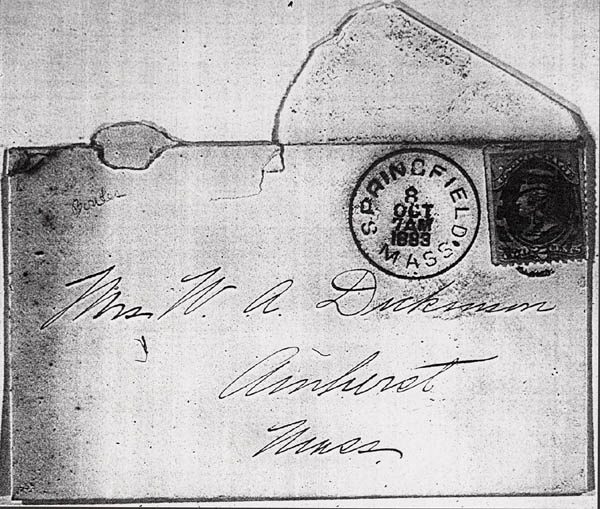 SPRINGFIELD
8
OCT
7AM
1883
MASS.
Mrs. W. A. Dickinson
Amherst
Mass.